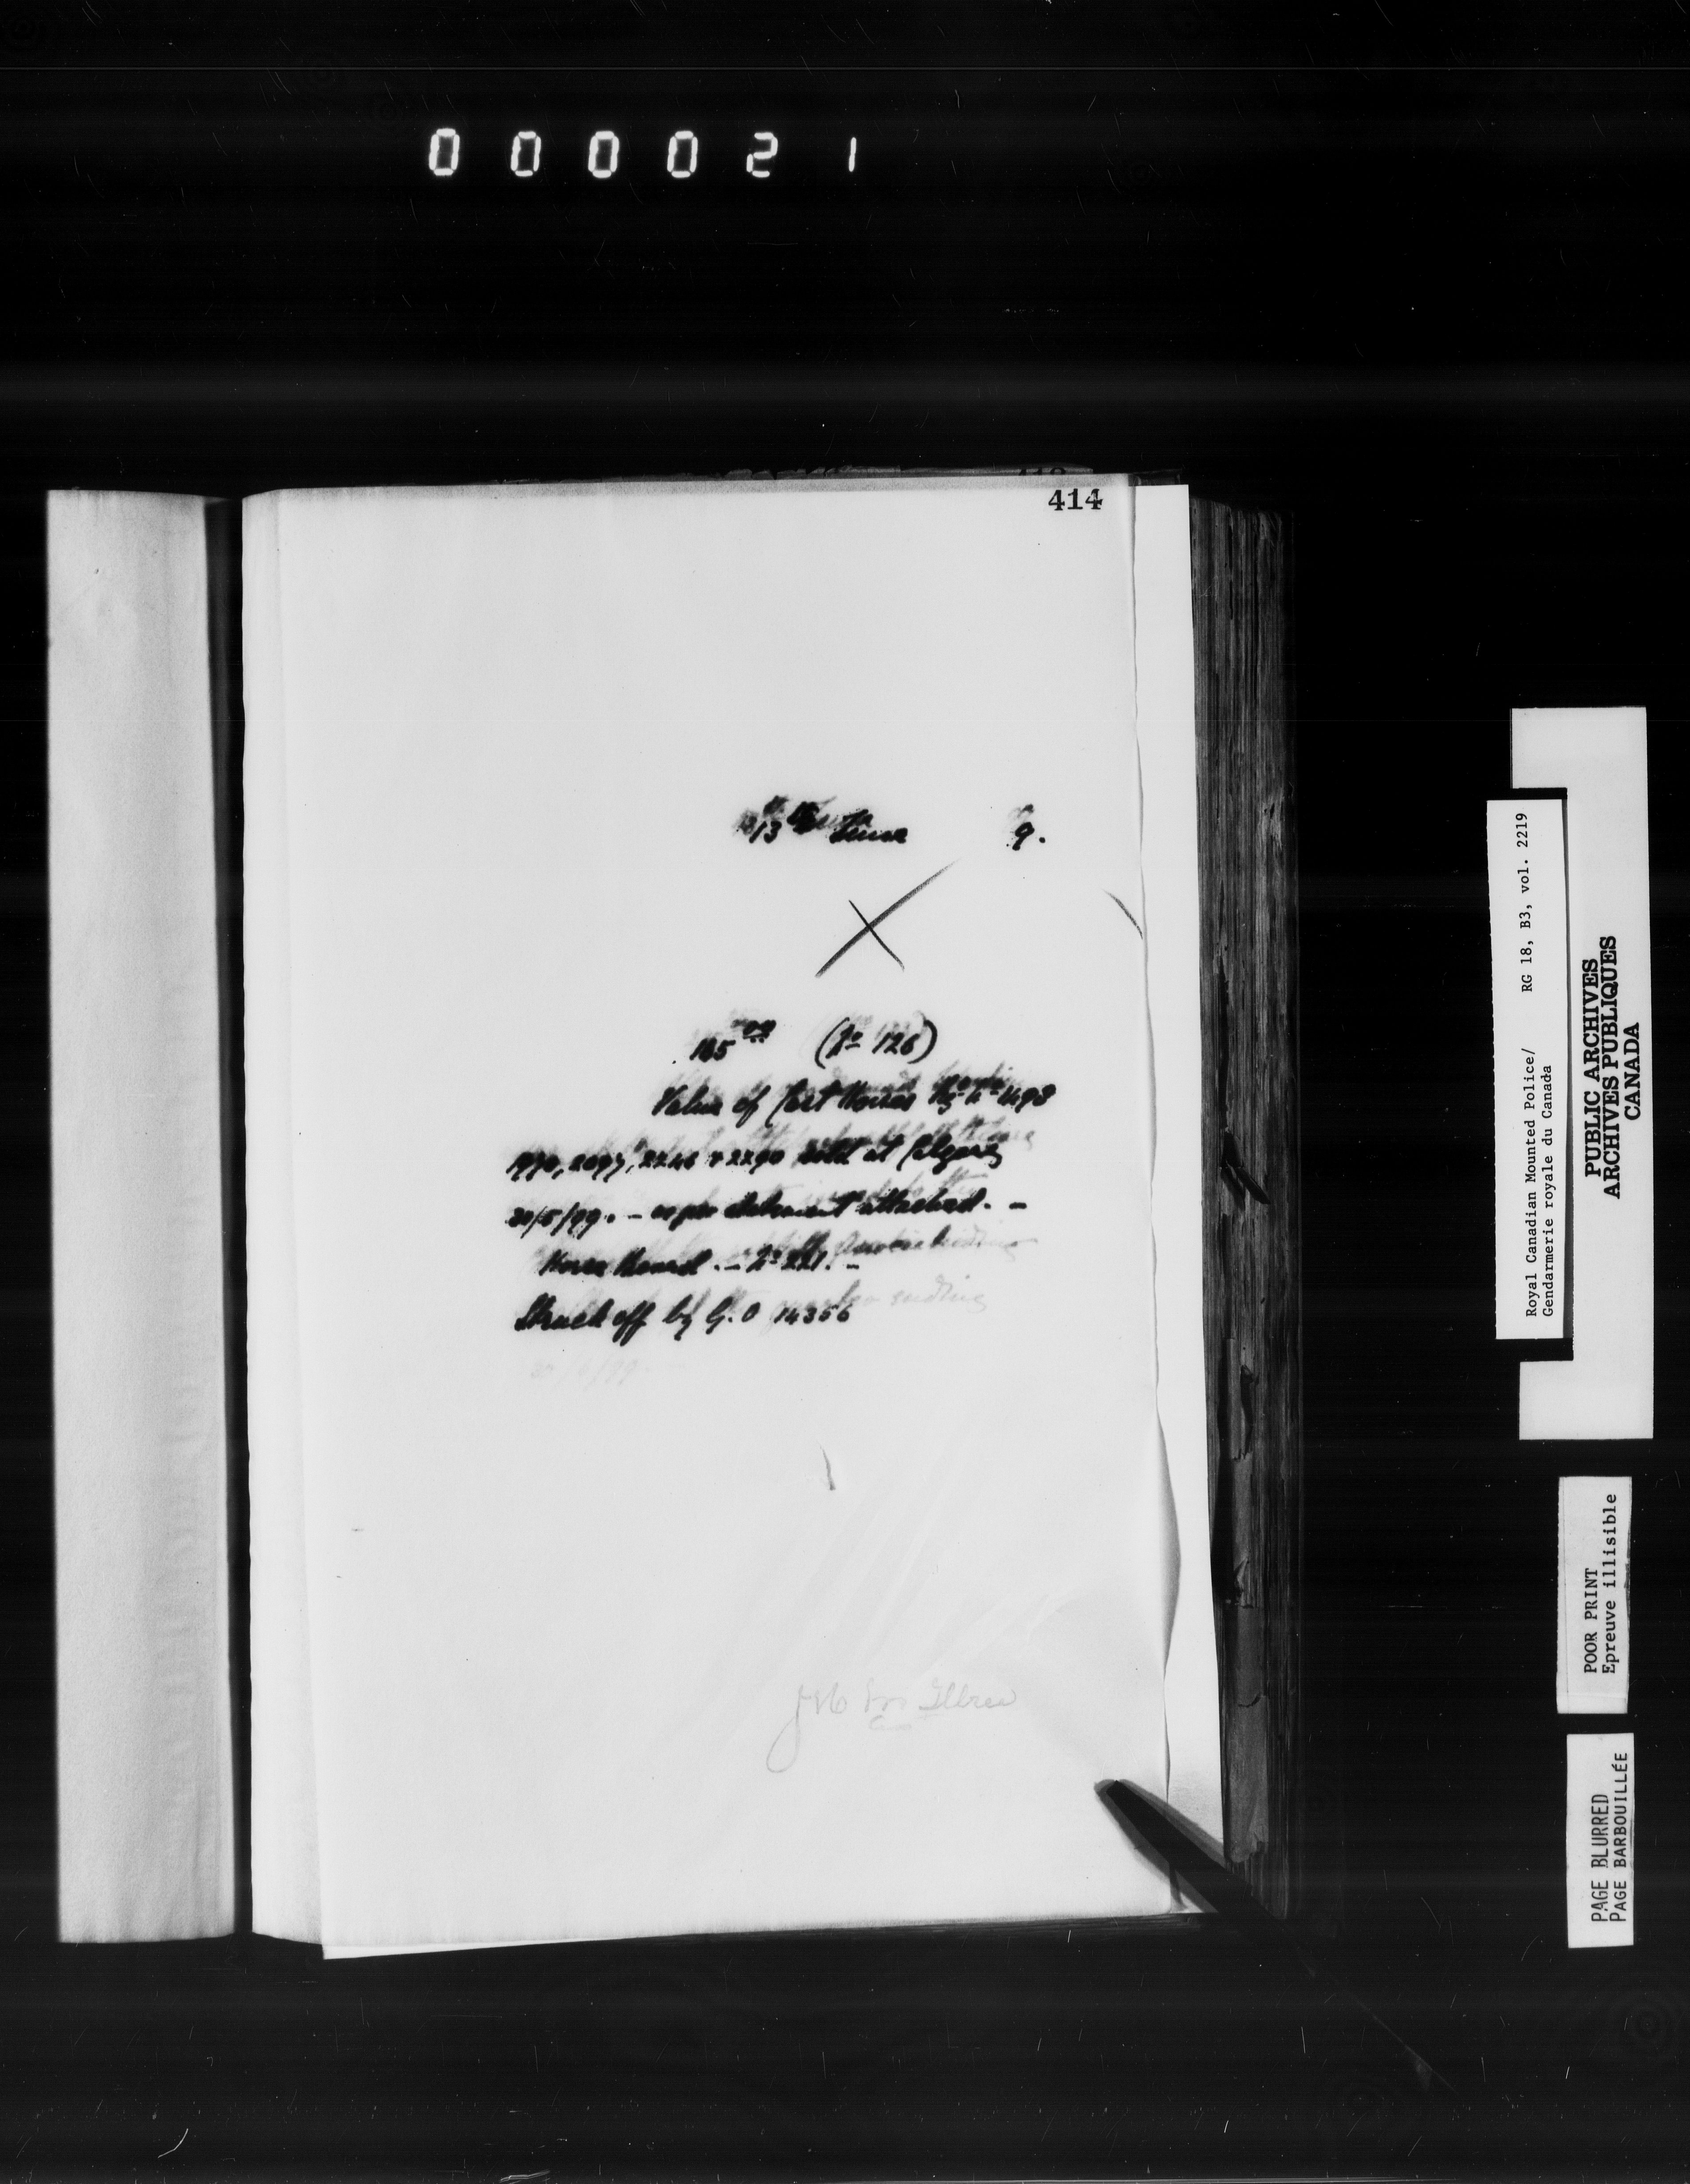 000021
414
13th June 9.
165 00 (No 126)
Value of Cast Horses Reg. No 1498
1970, 2097, 2246 & 2290 sold at Calgary
30/5/99. - as per statement attached. -
Horse Board. - No 221. -
Struck off by G.O 14356
Royal Canadian Mounted Police/ RG 18, B3, vol. 2219
Gendarmerie royale du Canada
PUBLIC ARCHIVES
ARCHIVES PUBLIQUES
CANADA
POOR PRINT
Epreuve illisible
PAGE BLURRED
PAGE BARBOUILLÉE